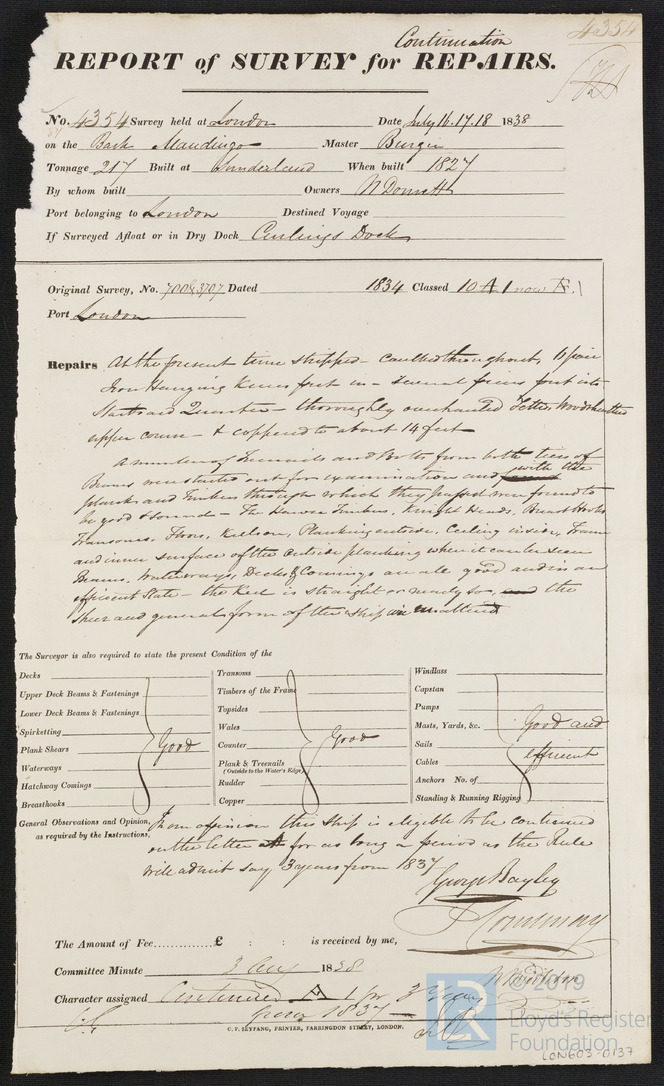 4354
Continuation
REPORT of SURVEY for REPAIRS.
No. 4354 Survey held at London Date July 16.17.18 1838
on the Bark Mandingo Master Burgin
Tonnage 217 Built at Sunderland When built 1827
By whom built Owners N Domett
Port belonging to London Destined Voyage
If Surveyed Afloat or in Dry Dock Curlings Dock
Original Survey, No. 700 & 3707 Dated 1834 Classed 10 A 1 now
Port London
Repairs At the present time stripped - caulked throughout, 10 pair
Iron Hanging Knees put in - several pieces put into
Starboard Quarter - thoroughly overhauled Felted, Woodsheathed
upper course - & coppered to about 14 feet
A number of Treenails and Bolts from both tiers of
Beams were started out for examination and with the
planks and Timbers through which they passed were found to
be good & sound - The Hawse Timbers, Knight Heads, Breast Hooks
Transoms, Floors, Keelson, Planking outside, Ceiling inside, Frame
and inner surface of the outside planking when it can be seen
Beams, Waterways, Decks & Comings are all good and in an
efficient State - the Keel is straight or nearly so, and the
Sheer and general form of the ship unaltered
The Surveyor is also required to state the present Condition of the
Decks Transoms Windlass
Upper Deck Beams & Fastenings Timbers of the Frame Capstan
Lower Deck Beams & Fastenings Topsides Pumps
Spirketting Wales Masts, Yards, &c. Good and
Plank Shears Good Counter Good Sails efficient
Waterways Plank & Treenails Cables
(Outside to the Water's Edge)
Hatchway Comings Rudder Anchors No. of
Breasthooks Copper Standing & Running Rigging
General Observations and Opinion, In our opinion this ship is eligible to be continued
as required by the Instructions on the letter A for as long a period as the Rule
will admit say 3 years from 1837
George Bayley
Courtenay
The Amount of Fee............£ : : is received by me,
Committee Minute 3 Aug 1838
Character assigned Continued A 1 for 3 Years
from 1837
C. F. SEYFANG, PRINTER, FARRINGDON STREET, LONDON.
LR
© 2019
Lloyd's Register
Foundation
LON603-0137